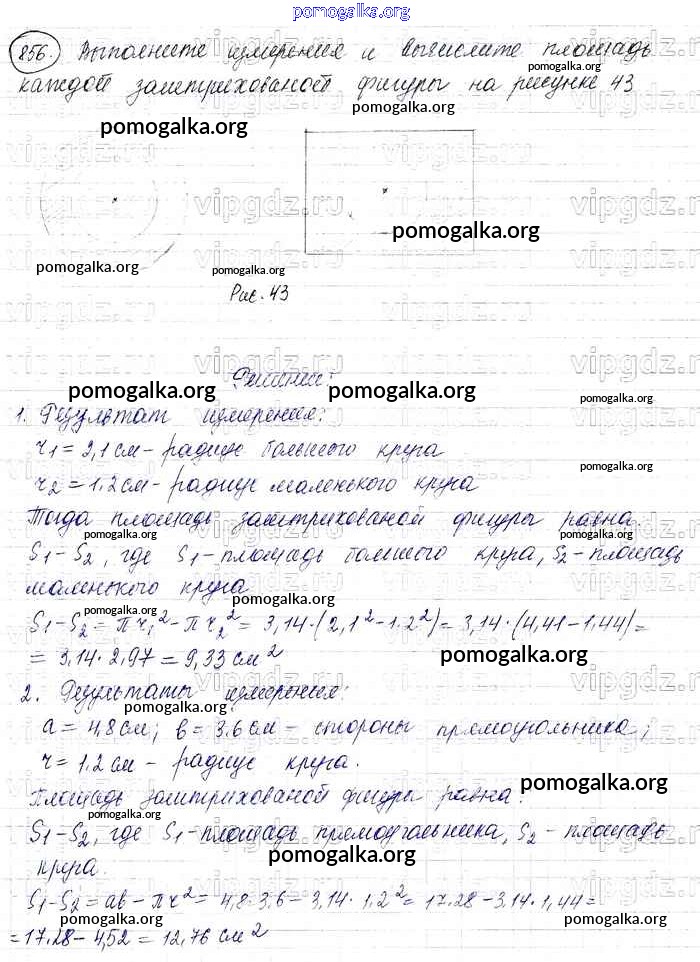 pomogalka.org
856. Выполните измерения и вычислите площадь
каждой заштрихованой фигуры на рисунке 43
Рис. 43
Решение:
1. Результат измерения:
r₁ = 2,1 см – радиус большего круга
r₂ = 1.2 см – радиус маленького круга
Тогда площадь заштрихованой фигуры равна.
S₁ – S₂, где S₁ – площадь большего круга, S₂ – площадь
маленького круга
S₁ – S₂ = πr₁² – πr₂² = 3,14·(2,1² – 1.2²) = 3,14·(4,41 – 1,44) =
= 3,14·2,97 = 9,33 см²
2. Результаты измерения:
a = 4,8 см; в = 3.6 см – стороны прямоугольника;
r = 1.2 см – радиус круга.
Площадь заштрихованой фигуры равна:
S₁ – S₂, где S₁ – площадь прямоугольника, S₂ – площадь
круга.
S₁ – S₂ = ав – πr² = 4,8·3,6 – 3,14·1,2² = 17.28 – 3,14·1,44 =
= 17.28 – 4,52 = 12,76 см²